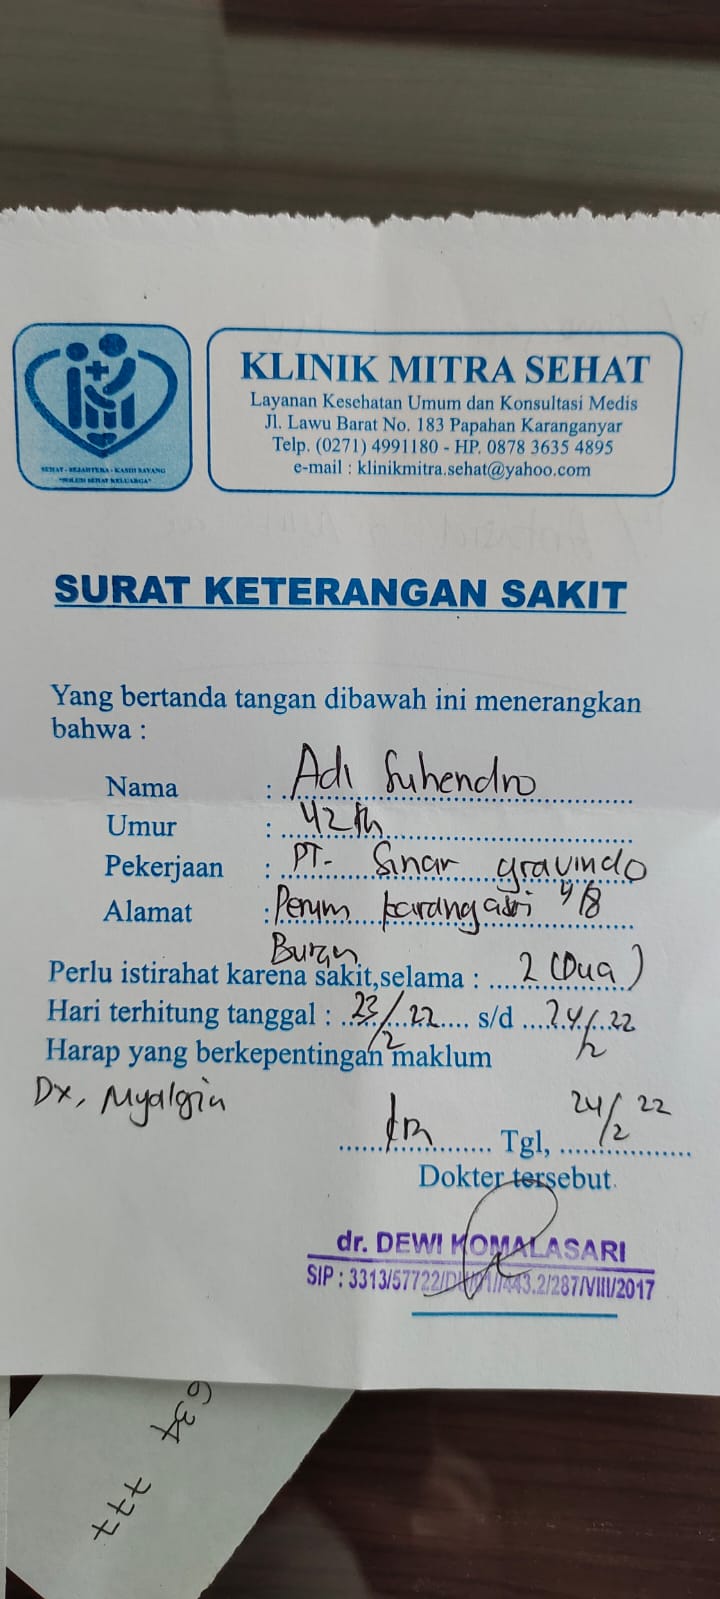 KLINIK MITRA SEHAT
Layanan Kesehatan Umum dan Konsultasi Medis
Jl. Lawu Barat No. 183 Papahan Karanganyar
Telp. (0271) 4991180 - HP. 0878 3635 4895
e-mail : klinikmitra.sehat@yahoo.com
SEHAT - SEJAHTERA - KASIH SAYANG
"SOLUSI SEHAT KELUARGA"
SURAT KETERANGAN SAKIT
Yang bertanda tangan dibawah ini menerangkan
bahwa :
Nama : Adi Suhendro
Umur : 42 th
Pekerjaan : PT. Sinar gravindo
Alamat : Perum karang asri 4/8
Buran
Perlu istirahat karena sakit,selama : 2 (Dua)
Hari terhitung tanggal : 23/2 22 s/d 24/2 22
Harap yang berkepentingan maklum
Dx, Myalgia
Tgl, 24/2 22
Dokter tersebut
dr. DEWI KOMALASARI
SIP : 3313/57722/ /443.2/287/VIII/2017
634
777